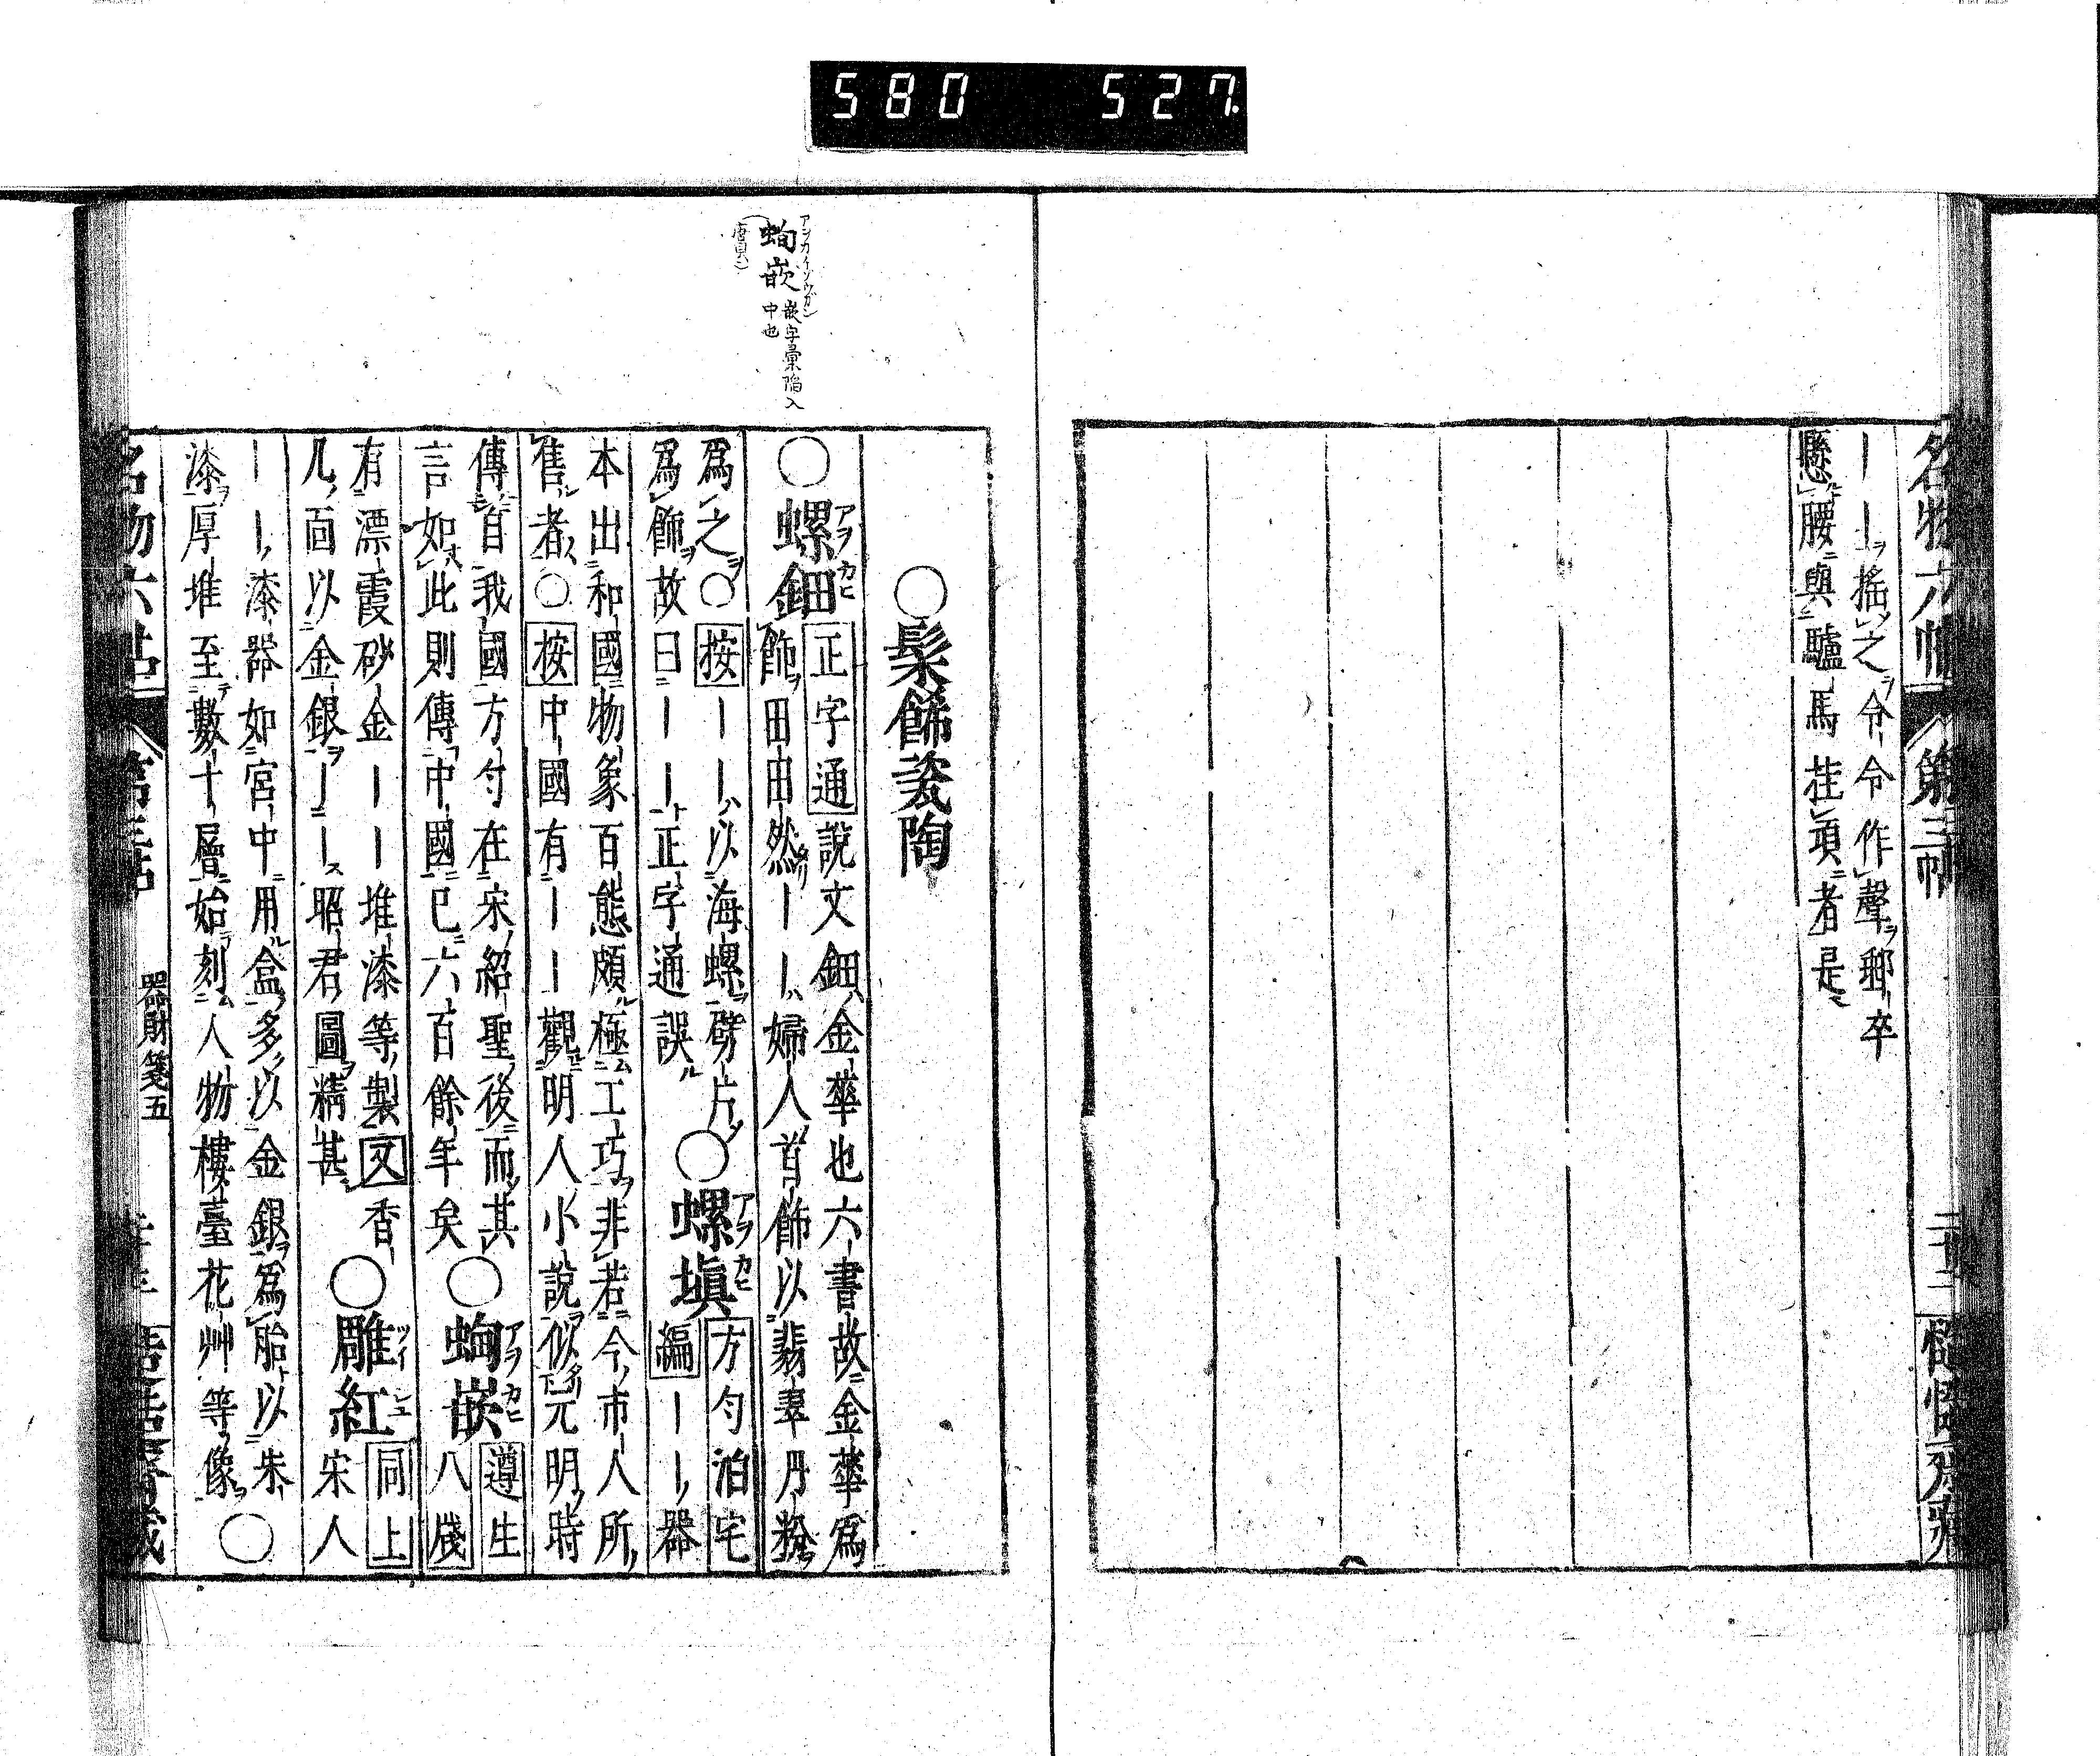 580 527
名物六帖 第三帖
――搖之令令作聲郵卒
懸腰與驢馬荘項者是
アシカイソウガン
蚼嵌 嵌字彙陥入
中也
○髹飾瓷陶
○螺鈿 正字通 說文鈿金華也六書故金華爲
飾田田然――婦人首飾以翡翠丹粉
爲之○按――以海螺劈片
爲飾故曰――正字通誤
○螺塡 方勺泊宅
編――器
本出和國物象百態頗極工巧非若今市人所
售者○按中國有――觀明人小說似元明時
傳自我國方勺在宋紹聖後而其
言如此則傳中國已六百餘年矣
○蚼嵌 遵生
八牋
有漂霞砂金――堆漆等製又香
几面以金銀――昭君圖精甚
○雕紅 同上
宋人
――漆器如宮中用盒多以金銀爲胎以朱
漆厚堆至數十層始刻人物樓臺花艸等像○
器財箋五